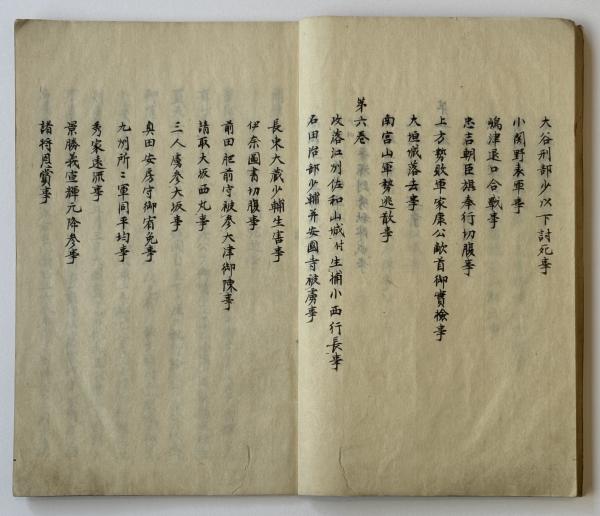 大谷刑部少以下討死事
小関野表軍事
嶋津退口合戦事
忠吉朝臣旗奉行切腹事
上方勢敗軍家康公敵首御實検事
大垣城落去事
南宮山軍勢逃散事
第六巻
攻落江刕佐和山城付生捕小西行長事
石田治部少輔并安國寺被虜事
長束大蔵少輔生害事
伊奈圖書切腹事
前田肥前守被参大津御陳事
請取大坂西丸事
三人虜参大坂事
真田安房守御宥免事
九刕所〻軍同平均事
秀家遠流事
景勝義宣輝元降参事
諸将恩賞事